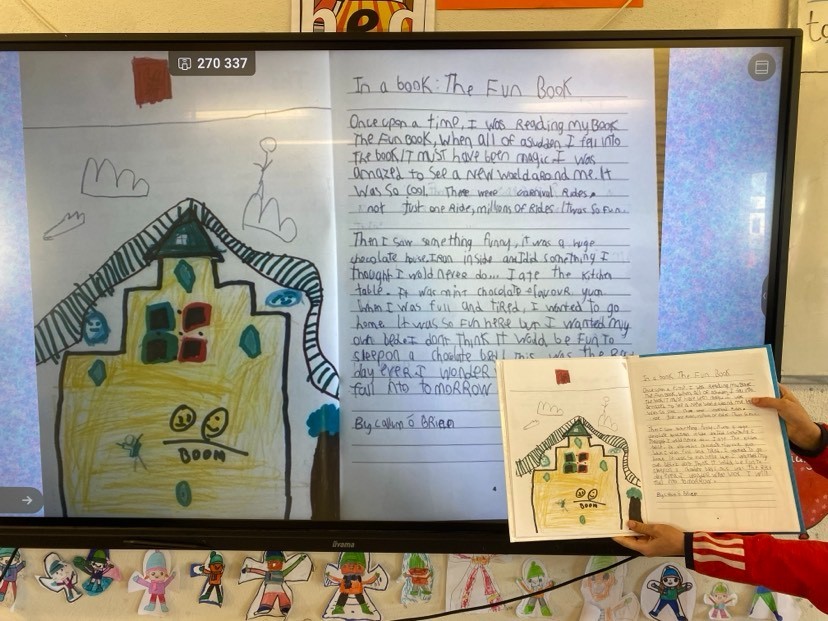 270 337
In a book: The Fun Book
Once upon a time, I was Reading my Book
The Fun Book, when all of asudden I fell into
the book/IT must have been magic. I was
amazed to see a new world around me. It
was so cool. There were carnival Rides.
not Just one Ride, millions of Rides. It was so Fun.
Then I saw something funny, it was a huge
chocolate house. I ran inside and did something I
thought I wold never do... I ate the Kitchen
table. It was mint chocolate flavour yum.
When I was full and tired, I wanted to go
home. It was so Fun here but I wanted my
own bed. I dont Think It would be Fun to
sleep on a chocolate bed! This was the
day ever I wonder
fall into tomorrow
By callum ó Brien
BOOM
4
iiyama
In a book: The Fun Book
BOOM